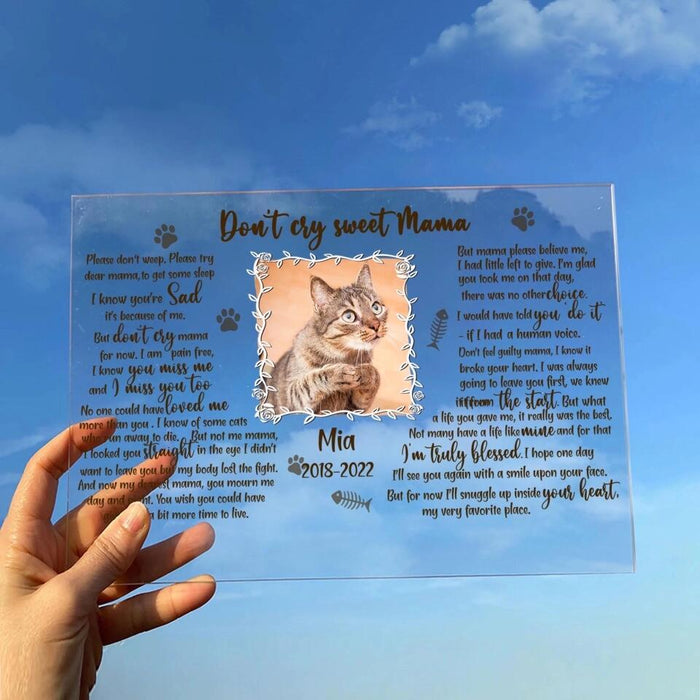 Don't cry sweet Mama
Please don't weep. Please try
dear mama, to get some sleep
I know you're Sad
it's because of me.
But don't cry mama
for now. I am pain free,
I know you miss me
and I miss you too
No one could have loved me
more than you. I know of some cats
who run away to die. But not me mama,
I looked you straight in the eye I didn't
want to leave you but my body lost the fight.
And now my dearest mama, you mourn me
day and night. You wish you could have
a bit more time to live.
Mia
2018-2022
But mama please believe me,
I had little left to give. I'm glad
you took me on that day,
there was no other choice.
I would have told you do it
- if I had a human voice.
Don't feel guilty mama, I know it
broke your heart. I was always
going to leave you first, we knew
from the start. But what
a life you gave me, it really was the best.
Not many have a life like mine and for that
I'm truly blessed. I hope one day
I'll see you again with a smile upon your face.
But for now I'll snuggle up inside your heart,
my very favorite place.